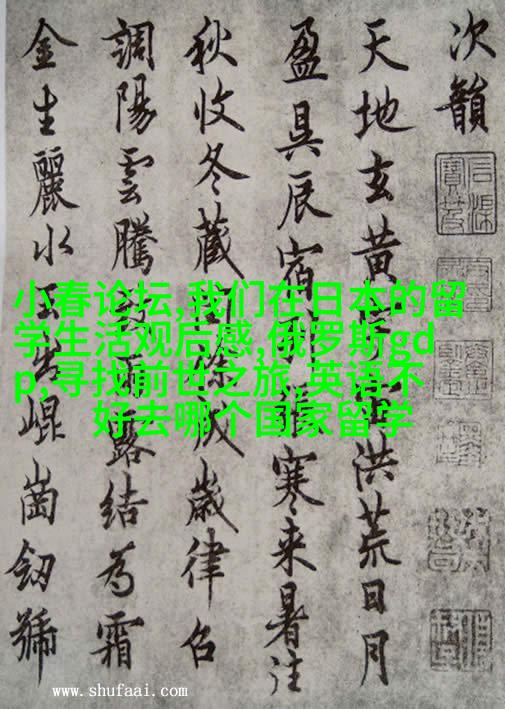 次韻
天地玄黃洪荒日月
盈昃辰宿寒来暑往
秋收冬藏餘成歲律召
調陽雲騰雨露結為霜
金生麗水玉出崐崗劒號
小春论坛,我们在日本的留
学生活观后感,俄罗斯gd
p,寻找前世之旅,英语不
好去哪个国家留学
www.shufaai.com